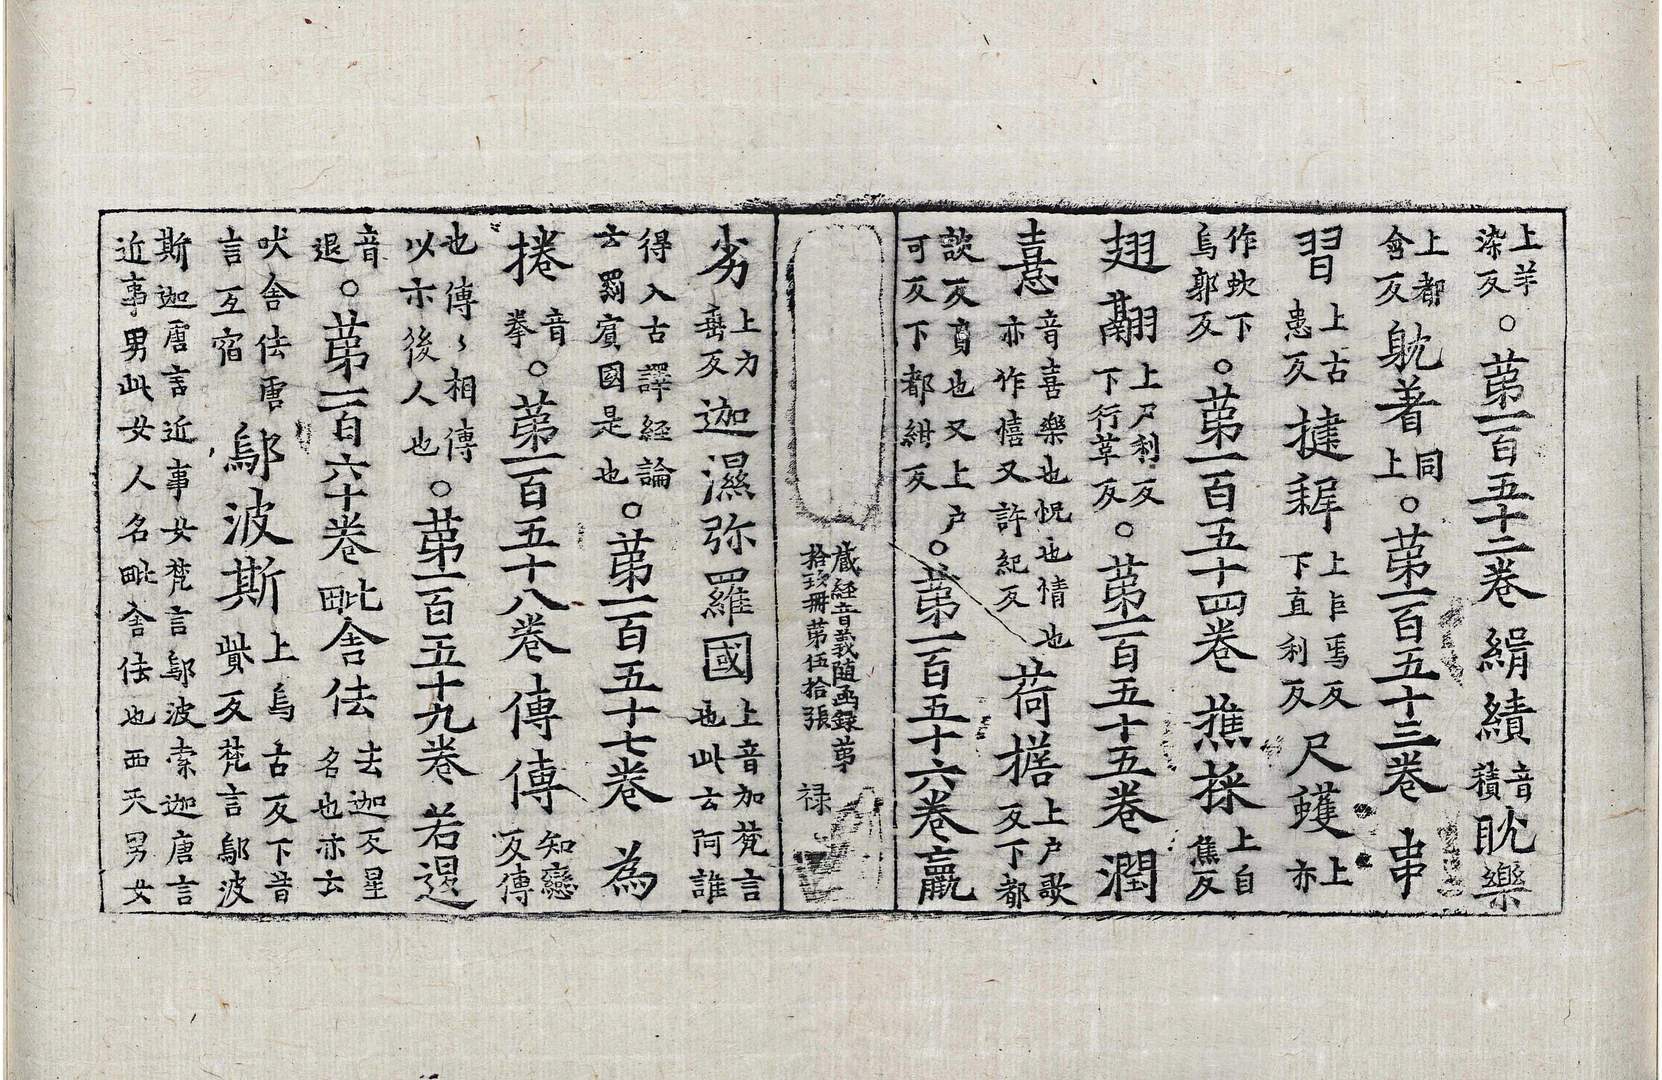 上羊染反。第一百五十二卷 絹績音積 眈樂
上都含反 躭着同上。第一百五十三卷 串
習上古患反 揵稺上巨焉反下直利反 尺蠖上亦
作蚇下烏郭反。第一百五十四卷 撨採上自焦反
翅翮上尸利反下行革反。第一百五十五卷 潤
憙音喜樂也悅也情也亦作憘又許紀反 荷擔上户歌反下都
談反負也又上户可反下都紺反。第一百五十六卷 羸
藏經音義随函録第拾玖冊第伍拾張 禄
劣上力垂反 迦濕弥羅國上音加梵言也此云阿誰
得入古譯經論云罽賓國是也。第一百五十七卷 為
捲音拳。第一百五十八卷 傳傳知戀反傳
也傳〻相傳以示後人也。第一百五十九卷 若退
音退。第一百六十卷 毗舍佉去迦反星名也亦云
吠舍佉唐言互宿 鄔波斯上烏古反下音貲反梵言鄔波
斯迦唐言近事女梵言鄔波索迦唐言近事男此女人名毗舍佉也西天男女